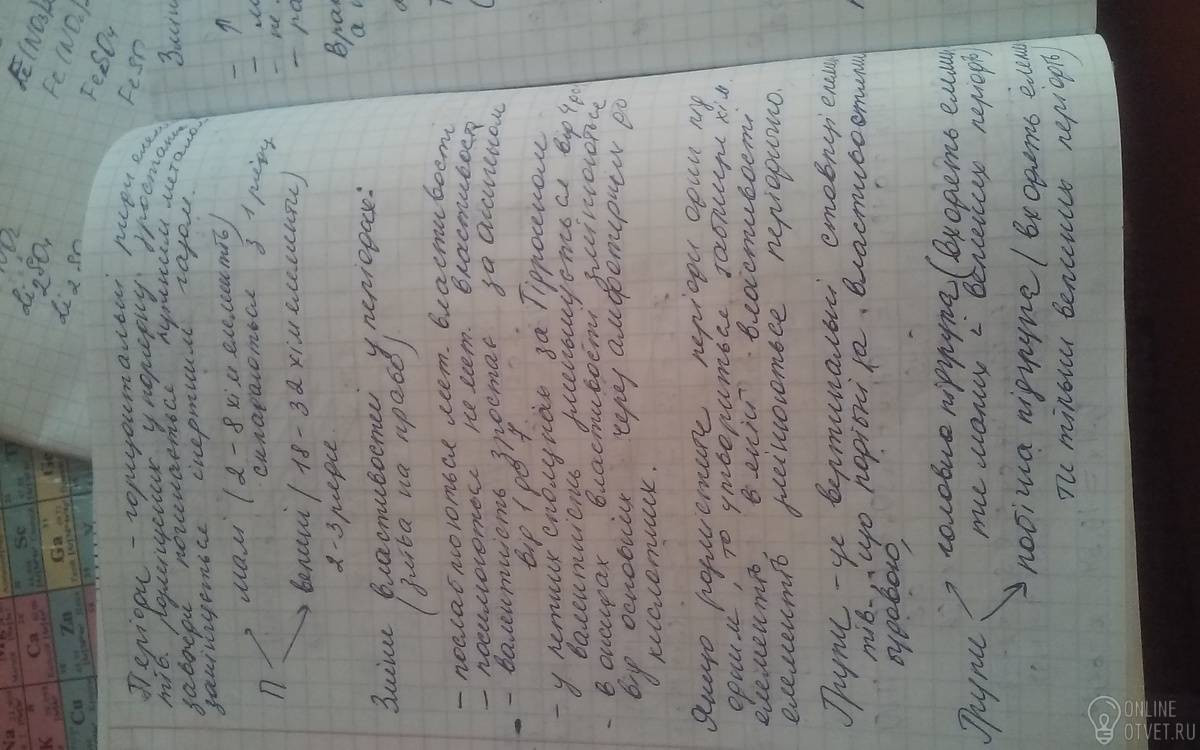 Періоди - горизонтальні ряди елемен
тів розміщених у порядку зростання
заводи починаються лужним металом
закінцеться інертним газом.
П
малі (2-8 хім елементів)
складаються з 1 ряду
великі (18-32 хім елементи)
2-3 ряди
Зміни властивостей у періодах:
(зліва на право)
- послаблюються мет. властивості
- посилюються не мет. властивост
- валентність зростає за оксигеном
від 1 до 7
- у летких сполуках за Гідрогеном
валентність зменшується від 4 до
- в оксидах властивості змінюються
від основних через амфотерних до
кислотних.
Якщо розмістити періоди один під
одим, то утвориться таблиця хім.
елементів в якій властивості
елементів змінюються періодично.
Групи - це вертикальні стовпці елемен
тів, що подібні за властивостями
будовою,
Групи
головна підгрупа (входять елемен
ти малих і великих періодів)
побічна підгрупа (входять елемен
ти тільки великих періодів)
Fe(NO2)2
FeSO4
Li2SO4
Ca
Sc
Cu
Zn
Ga
Ge
K
V
ONLINE
OTVET.RU